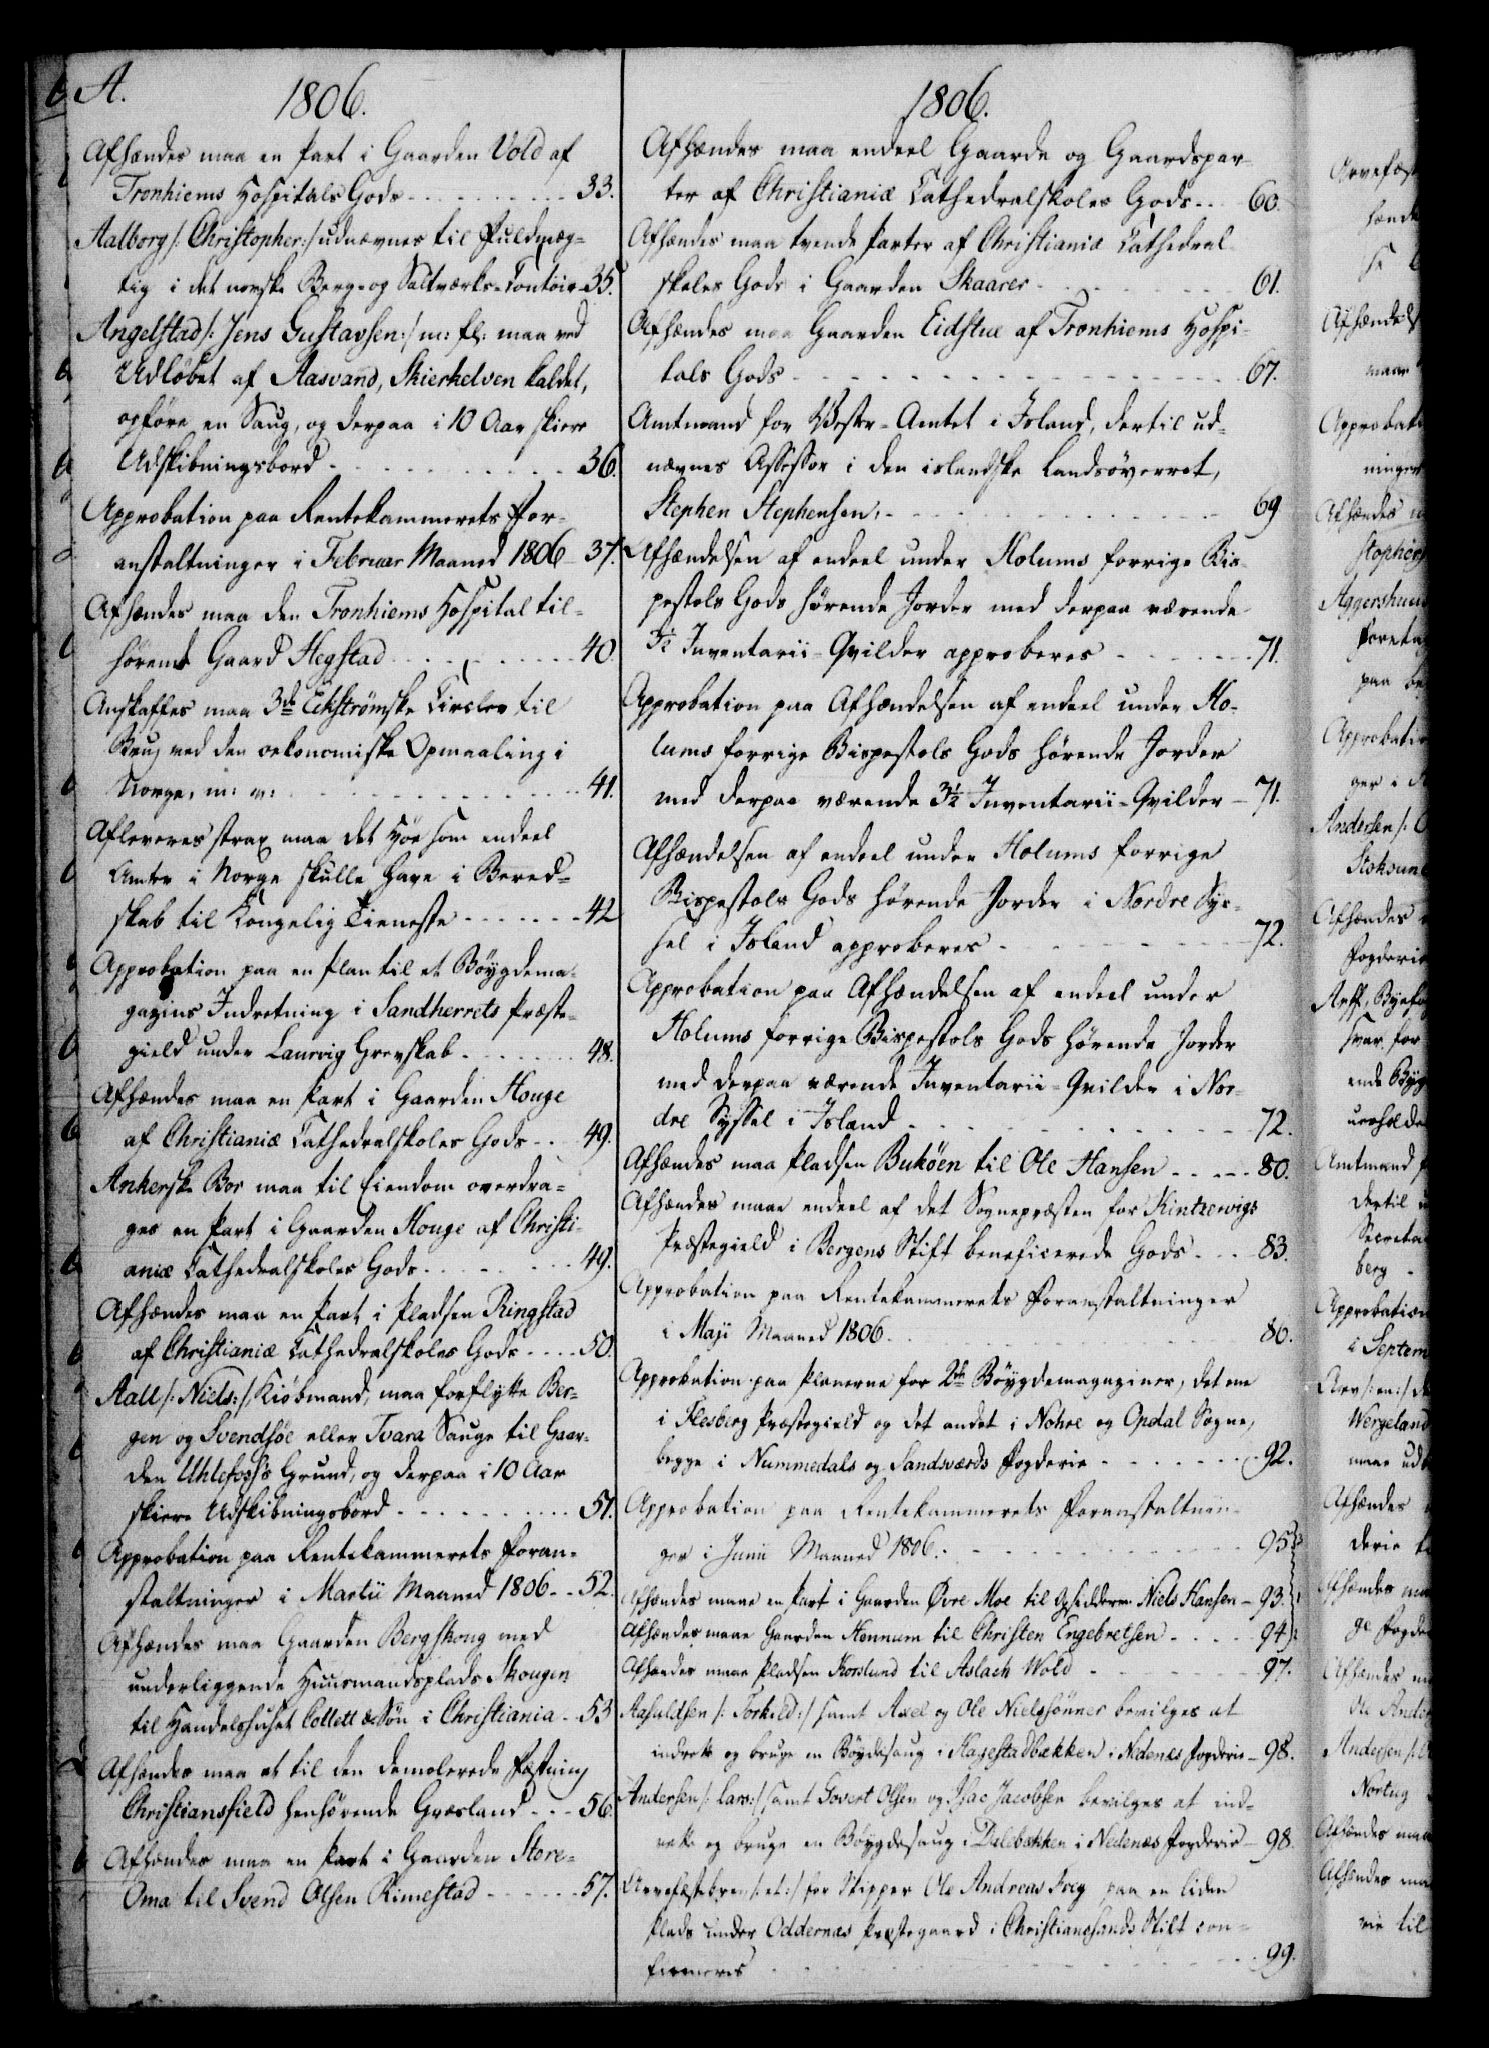 A.
1806.
Afhændes maa en Part i Gaarden Vold af
Tronhiems Hospitals Gods - - - 33.
Aalborg /: Christopher :/ udnævnes til Fuldmæg-
tig i det norske Berg- og Saltværks-Contoir - 35.
Angelstad /: Jens Gustavsen :/ m: fl: maa ved
Udløbet af Aasvand, Skierkelven kaldet,
opføre en Saug, og derpaa i 10 Aar skiere
Udskibningsbord - - - 36.
Approbation paa Rentekammerets For-
anstaltninger i Februar Maaned 1806 - 37.
Afhændes maa den Tronhiems Hospital til-
hørende Gaard Hegstad - - - 40.
Anskaffes maa 3de Eckstrømske Cirsler til
Brug ved den oekonomiske Opmaaling i
Norge, m: v: - - - 41.
Afleveres strax maa det Høe som endeel
Amter i Norge skulle have i Bered-
skab til Kongelig Tieneste - - - 42
Approbation paa en Plan til et Böygdema-
gazins Indretning i Sandherrets Præste-
gield under Laurvig Grevskab - - - 48.
Afhændes maa en Part i Gaarden Houge
af Christianiæ Cathedralskoles Gods - - 49.
Ankerske Bor maa til Eiendom overdra-
ges en Part i Gaarden Houge af Christi-
aniæ Cathedralskoles Gods - - - 49.
Afhændes maa en Part i Pladsen Ringstad
af Christianiæ Cathedralskoles Gods - - - 50.
Aall /: Niels :/ Kiøbmand, maa forflytte Ber-
gen og Svendsöe eller Tvara Sauge til Gaar-
den Uhlefoss's Grund, og derpaa i 10 Aar
skiere Udskibningsbord - - - 51.
Approbation paa Rentekammerets Foran-
staltninger i Martii Maaned 1806 - - 52.
Afhændes maa Gaarden Bergskoug med
underliggende Huusmandsplads Skougen
til Handelshuset Collett & Søn i Christiania - 53
Afhændes maa et til den demolerede Fæstning
Christiansfield henhørende Græsland - - - 56.
Afhændes maa en Part i Gaarden Store-
Oma til Svend Olsen Rimestad - - - 57.
1806.
Afhændes maa endeel Gaarde og Gaardspar-
ter af Christianiæ Cathedralskoles Gods - - - 60.
Afhændes maa tvende Parter af Christianiæ Cathedral-
skoles Gods i Gaarden Skaarer - - - 61.
Afhændes maa Gaarden Eidstue af Tronhiems Hospi-
tals Gods - - - 67.
Amtmand for Vester-Amtet i Island, dertil ud-
nævnes Assessor i den islandske Landsöverret,
Stephen Stephensen, - - - 69
Afhændelsen af endeel under Holums forrige Bis-
pestols Gods hørende Jorder med derpaa værende
3½ Inventarii-Qvilder approberes - - - 71.
Approbation paa Afhændelsen af endeel under Ho-
lums forrige Bispestols Gods hørende Jorder
med derpaa værende 3½ Inventarii-Qvilder - 71.
Afhændelsen af endeel under Holums forrige
Bispestols Gods hørende Jorder i Nordre Sys-
sel i Island approberes - - - 72.
Approbation paa Afhændelsen af endeel under
Holums forrige Bispestols Gods hørende Jorder
med derpaa værende Inventarii-Qvilder i Nor-
dre Syssel i Island - - - 72.
Afhændes maa Pladsen Bukøen til Ole Hansen - - - 80.
Afhændes maae endeel af det Sognepræsten for Kintzervigs
Præstegield i Bergens Stift beneficerede Gods - - - 83.
Approbation paa Rentekammerets Foranstaltninger
i Maji Maaned 1806 - - - 86.
Approbation paa Planerne for 2de Böygdemagaziner, det ene
i Flesberg Præstegield og det andet i Nohre og Opdal Sogne,
begge i Nummedals og Sandsværds Fogderie - - - 92.
Approbation paa Rentekammerets Foranstaltnin-
ger i Junii Maaned 1806. - - - 95
Afhændes maae en Part i Gaarden Øvre Moe til Opsidderen Niels Hansen - 93.
Afhændes maae Gaarden Hennum til Christen Engebretsen - - - 94
Afhændes maae Pladsen Korslund til Aslach Wold - - - 97.
Aasuldsen /: Torkild :/ samt Axel og Ole Nielssönner bevilges at
indrette og bruge en Böygdesaug i Hagestadbækken i Nedenes Fogderie - 98.
Andersen /: Lars :/ samt Govert Olsen og Isac Jacobsen bevilges at ind-
rette og bruge en Böygdesaug i Dalebækken i Nedenæs Fogderie - 98.
Arvefæstebrev /: et :/ for Skipper Ole Andreas Frig paa en liden
Plads under Oddernæs Præstegaard i Christiansands Stift con-
firmeres - - - 99.